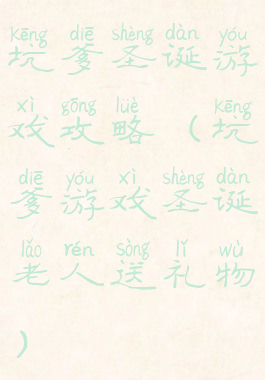 kēng diē shèng dàn yóu
坑爹圣诞游
xì gōng lüè kēng
戏攻略（坑
diē yóu xì shèng dàn
爹游戏圣诞
lǎo rén sòng lǐ wù
老人送礼物
）